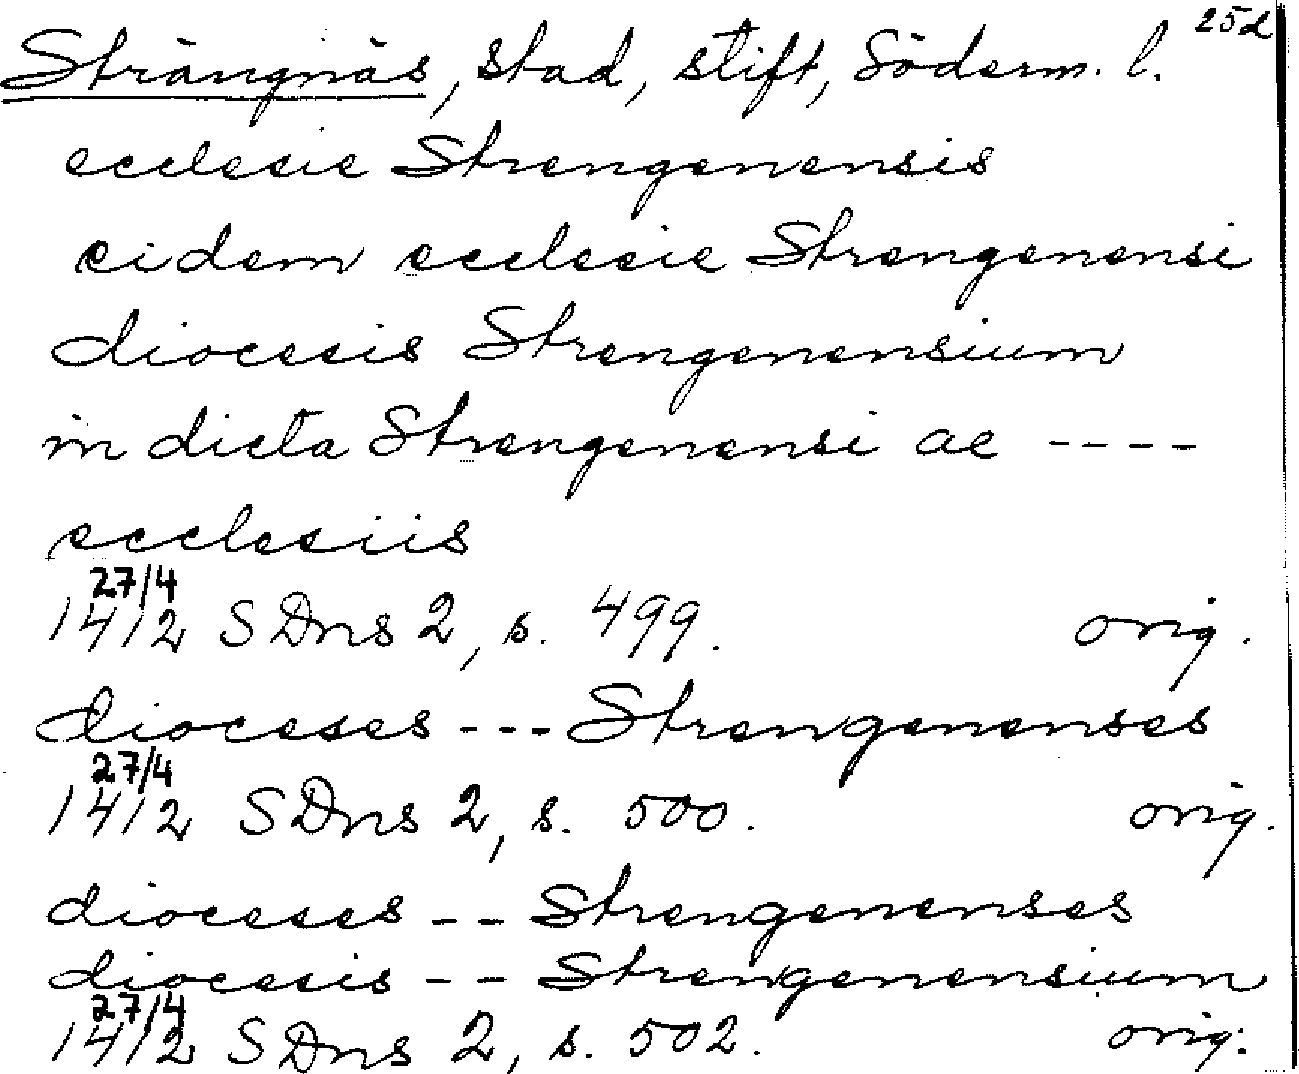 25d
Strängnäs, stad, stift, Söderm. l.
ecclesie Strengenensis
eidem ecclesie Strengenensi
diocesis Strengenensium
in dicta Strengenensi ac ----
ecclesiis
27/4
1412 SDns 2, s. 499. orig.
dioceses --- Strengenenses
27/4
1412 SDns 2, s. 500. orig.
dioceses -- Strengenenses
diocesis -- Strengenensium
27/4
1412 SDns 2, s. 502. orig.